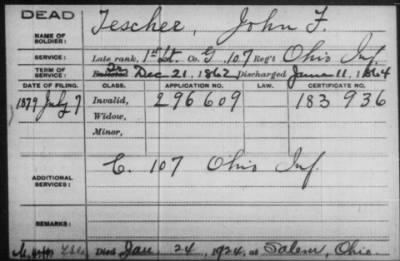 DEAD
NAME OF SOLDIER: Tescher, John F.
SERVICE: Late rank, 1st Lt. Co. G, 107 Reg't Ohio Inf.
TERM OF SERVICE: Enlisted Dr Dec 21, 1862, Discharged June 11, 1864
DATE OF FILING. CLASS. APPLICATION NO. LAW. CERTIFICATE NO.
1879 July 7 Invalid, 296609 183936
Widow,
Minor,
ADDITIONAL SERVICES: C. 107 Ohio Inf.
REMARKS:
Died Jan 24, 1924, at Salem, Ohio